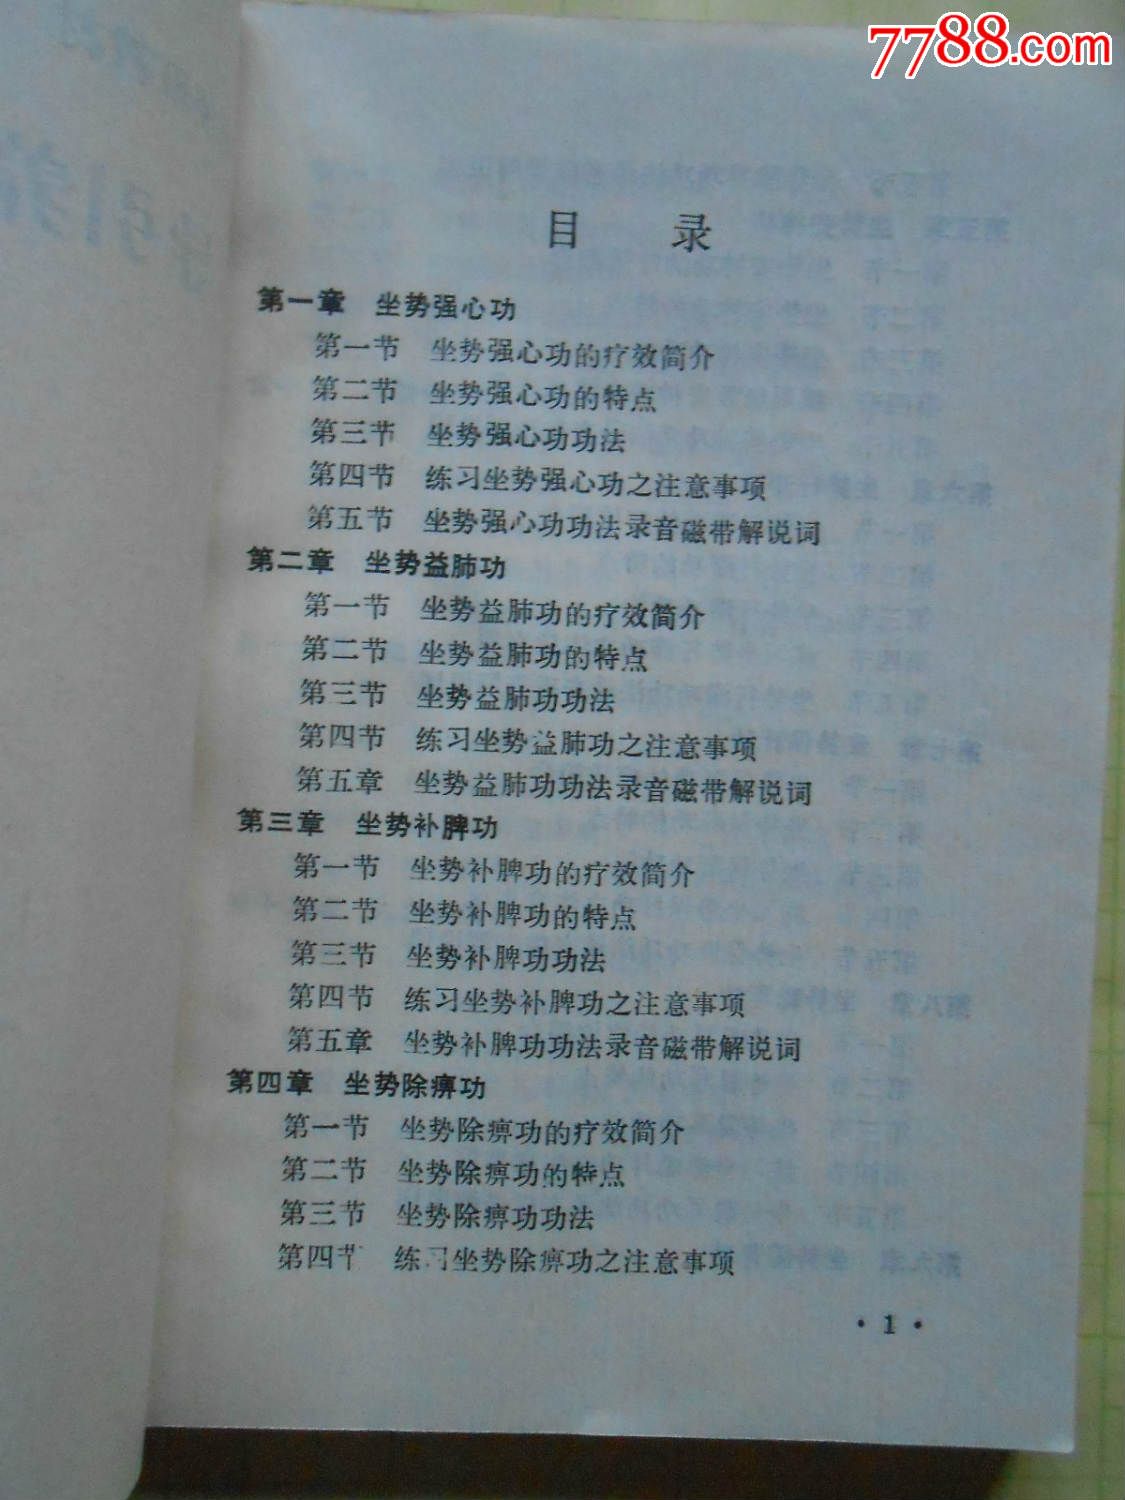 7788.com
目 录
第一章 坐势强心功
第一节 坐势强心功的疗效简介
第二节 坐势强心功的特点
第三节 坐势强心功功法
第四节 练习坐势强心功之注意事项
第五节 坐势强心功功法录音磁带解说词
第二章 坐势益肺功
第一节 坐势益肺功的疗效简介
第二节 坐势益肺功的特点
第三节 坐势益肺功功法
第四节 练习坐势益肺功之注意事项
第五章 坐势益肺功功法录音磁带解说词
第三章 坐势补脾功
第一节 坐势补脾功的疗效简介
第二节 坐势补脾功的特点
第三节 坐势补脾功功法
第四节 练习坐势补脾功之注意事项
第五章 坐势补脾功功法录音磁带解说词
第四章 坐势除痹功
第一节 坐势除痹功的疗效简介
第二节 坐势除痹功的特点
第三节 坐势除痹功功法
第四节 练习坐势除痹功之注意事项
· 1 ·